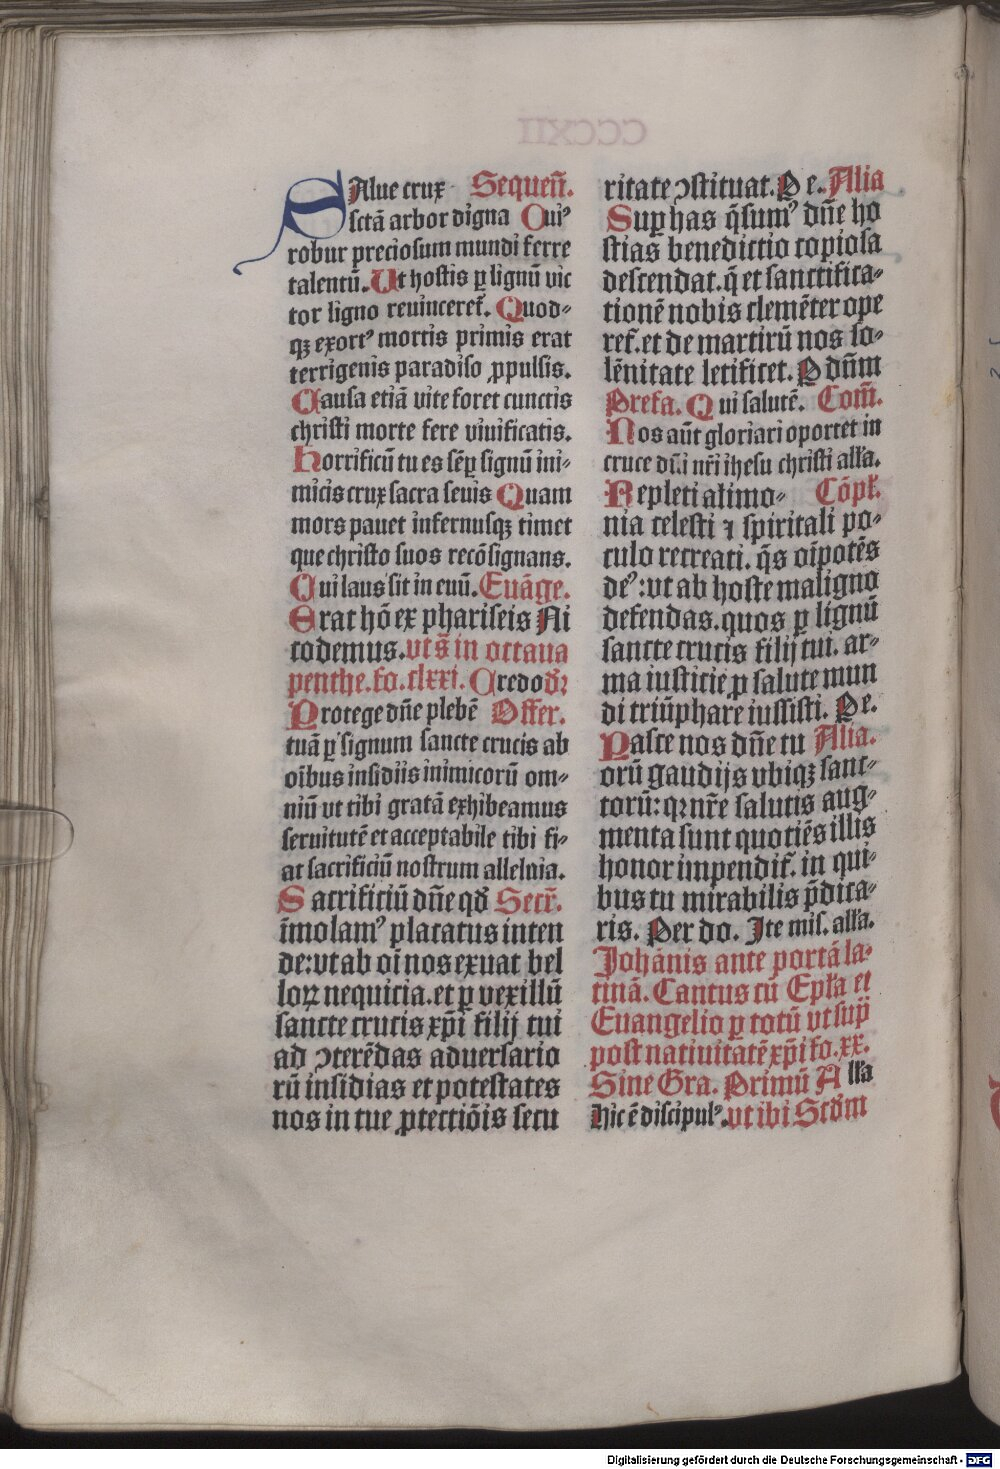 SAlue crux Sequen̄.
sctā arbor digna Cui⁹
robur preciosum mundi ferre
talentū. Ut hostis ꝑ lignū vic
tor ligno reuinceret̄. Quod⸗
qꝫ exort⁹ mortis primis erat
terrigenis paradiso ꝓpulsis.
Causa etiā vite foret cunctis
christi morte fere viuificatis.
Horrificū tu es sēꝑ signū ini⸗
micis crux sacra seuis Quam
mors pauet infernusqꝫ timet
que christo suos recōsignans.
Cui laus sit in euū. Euāge.
Erat hō ex phariseis Ni
codemus. vt s̄ in octaua
penthe. fo. clxxi. Credo dꝛ
Protege dn̄e plebē Offer.
tuā ꝑ signum sancte crucis ab
oībus insidiis inimicorū om⸗
niū vt tibi gratā exhibeamus
seruitutē et acceptabile tibi fi⸗
at sacrificiū nostrum alleluia.
Sacrificiū dn̄e qd̄ Secr̄.
īmolam⁹ placatus inten
de: vt ab oī nos exuat bel
loꝝ nequicia. et ꝑ vexillū
sancte crucis xp̄i filij tui
ad ↄterēdas aduersario
rū insidias et potestates
nos in tue ꝓtectiōis secu
ritate ↄstituat. Pe. Alia
Suꝑ has q̄sum⁹ dn̄e ho
stias benedictio copiosa
descendat. q̄ et sanctifica⸗
tionē nobis clemēter ope
ret̄. et de martirū nos so⸗
lēnitate letificet. P dn̄m
Prefa. Qui salutē. Com̄.
Nos aūt gloriari oportet in
cruce dn̄i nr̄i ihesu christi all̄a.
Repleti alimo⸗ Cōpl̄.
nia celesti ⁊ spiritali po⸗
culo recreati. q̄s oīpotēs
de⁹: vt ab hoste maligno
defendas. quos ꝑ lignū
sancte crucis filij tui. ar⸗
ma iusticie ꝓ salute mun
di triūphare iussisti. Pe.
Pasce nos dn̄e tu Alia.
orū gaudijs vbiqꝫ sanc⸗
torū: qꝛ nr̄e salutis aug⸗
menta sunt quotiēs illis
honor impendit̄. in qui⸗
bus tu mirabilis p̄dica⸗
ris. Per do. Ite mis. all̄a.
Johānis ante portā la⸗
tinā. Cantus cū Epl̄a et
Euangelio ꝑ totū vt sup̄
post natiuitatē xp̄i fo. xx.
Sine Gra. Primū All̄a
Hic ē discipul⁹. vt ibi Scd̄m
Digitalisierung gefördert durch die Deutsche Forschungsgemeinschaft - DFG